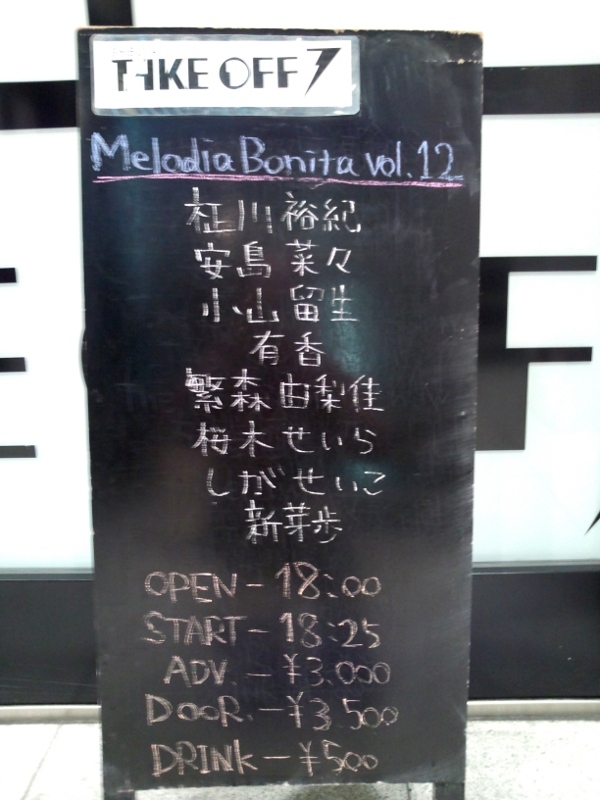 TAKE OFF 7
Melodia Bonita vol.12
柾川裕紀
安島菜々
小山留生
有香
繁森由梨佳
桜木せいら
しがせいこ
新芽歩
OPEN - 18:00
START - 18:25
ADV. - ¥3.000
DOOR. - ¥3.500
DRINK - ¥500